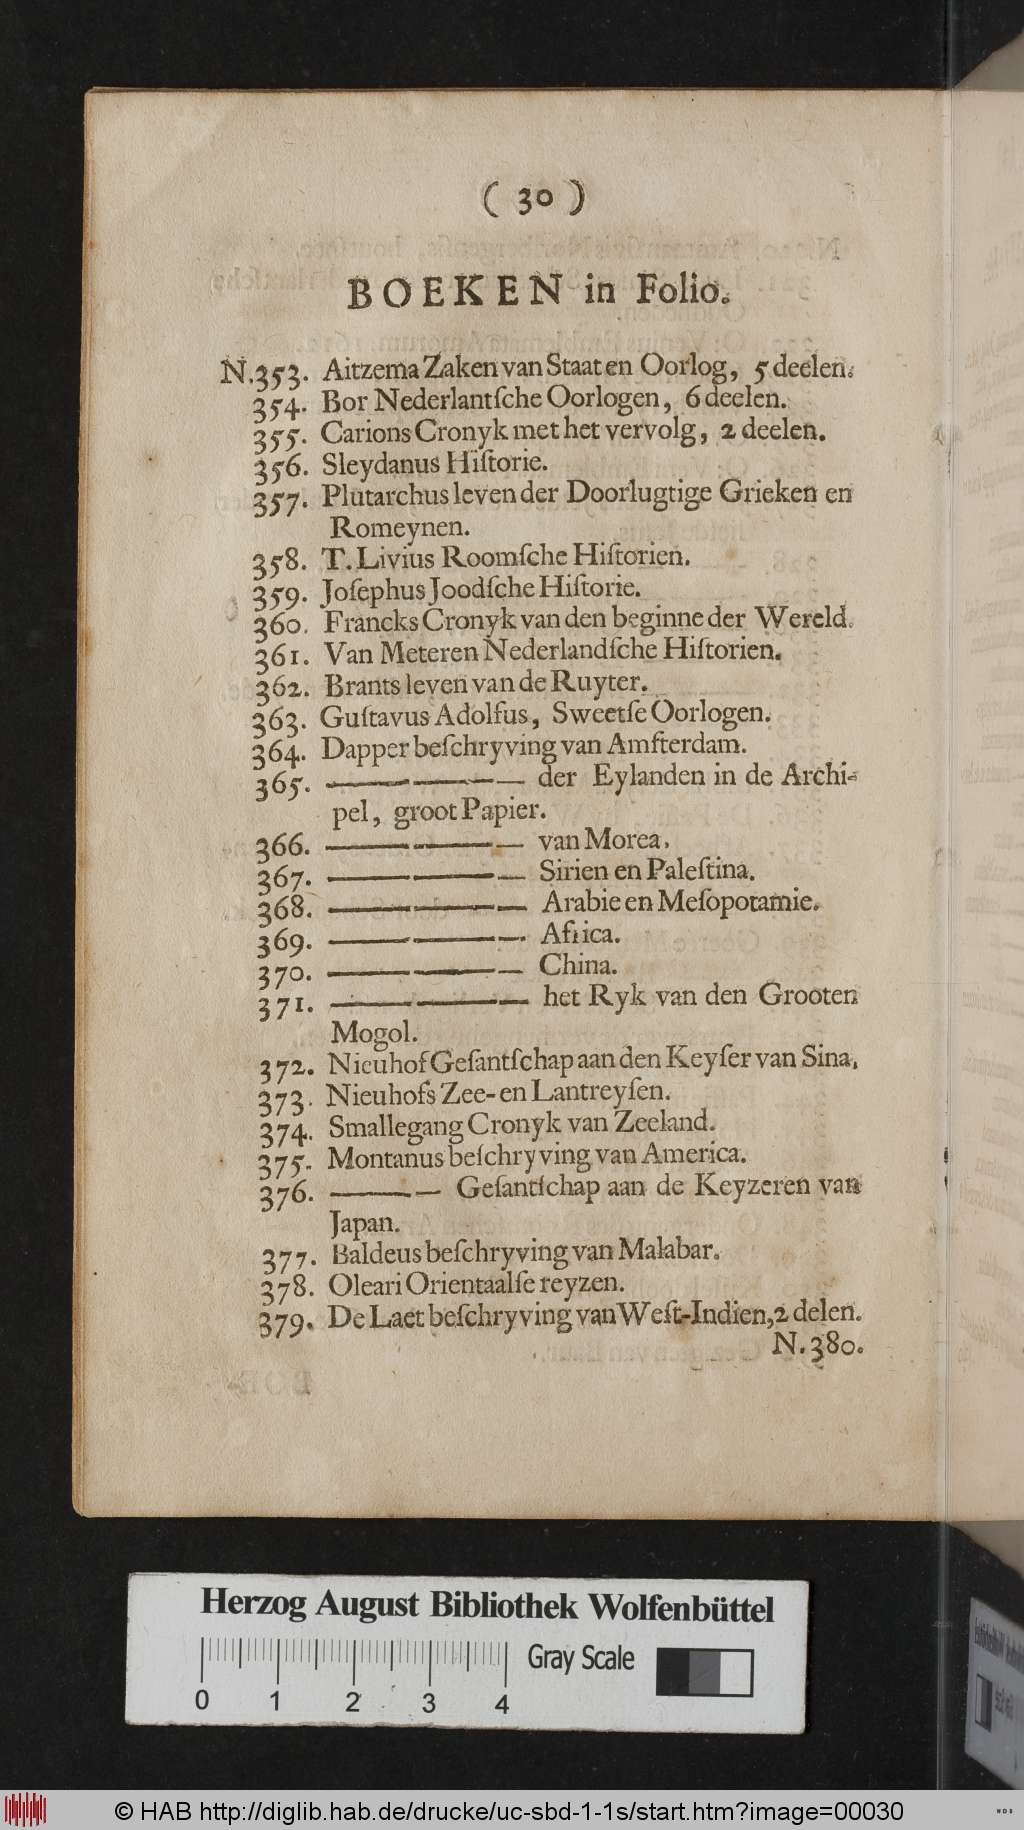 ( 30 )
BOEKEN in Folio.
N.353. Aitzema Zaken van Staat en Oorlog, 5 deelen.
354. Bor Nederlantſche Oorlogen, 6 deelen.
355. Carions Cronyk met het vervolg, 2 deelen.
356. Sleydanus Hiſtorie.
357. Plutarchus leven der Doorlugtige Grieken en
Romeynen.
358. T. Livius Roomſche Hiſtorien.
359. Joſephus Joodſche Hiſtorie.
360. Francks Cronyk van den beginne der Wereld.
361. Van Meteren Nederlandſche Hiſtorien.
362. Brants leven van de Ruyter.
363. Guſtavus Adolfus, Sweetſe Oorlogen.
364. Dapper beſchryving van Amſterdam.
365. ——— ——— — der Eylanden in de Archi-
pel, groot Papier.
366. ——— ——— — van Morea.
367. ——— ——— — Sirien en Paleſtina.
368. ——— ——— — Arabie en Meſopotamie.
369. ——— ——— —. Africa.
370. ——— ——— — China.
371. ——— ——— — het Ryk van den Grooten
Mogol.
372. Nieuhof Geſantſchap aan den Keyſer van Sina.
373. Nieuhofs Zee- en Lantreyſen.
374. Smallegang Cronyk van Zeeland.
375. Montanus beſchryving van America.
376. ——— — Geſantſchap aan de Keyzeren van
Japan.
377. Baldeus beſchryving van Malabar.
378. Oleari Orientaalſe reyzen.
379. De Laet beſchryving van Weſt-Indien, 2 delen.
N. 380.
Herzog August Bibliothek Wolfenbüttel
Gray Scale
0 1 2 3 4
© HAB http://diglib.hab.de/drucke/uc-sbd-1-1s/start.htm?image=00030